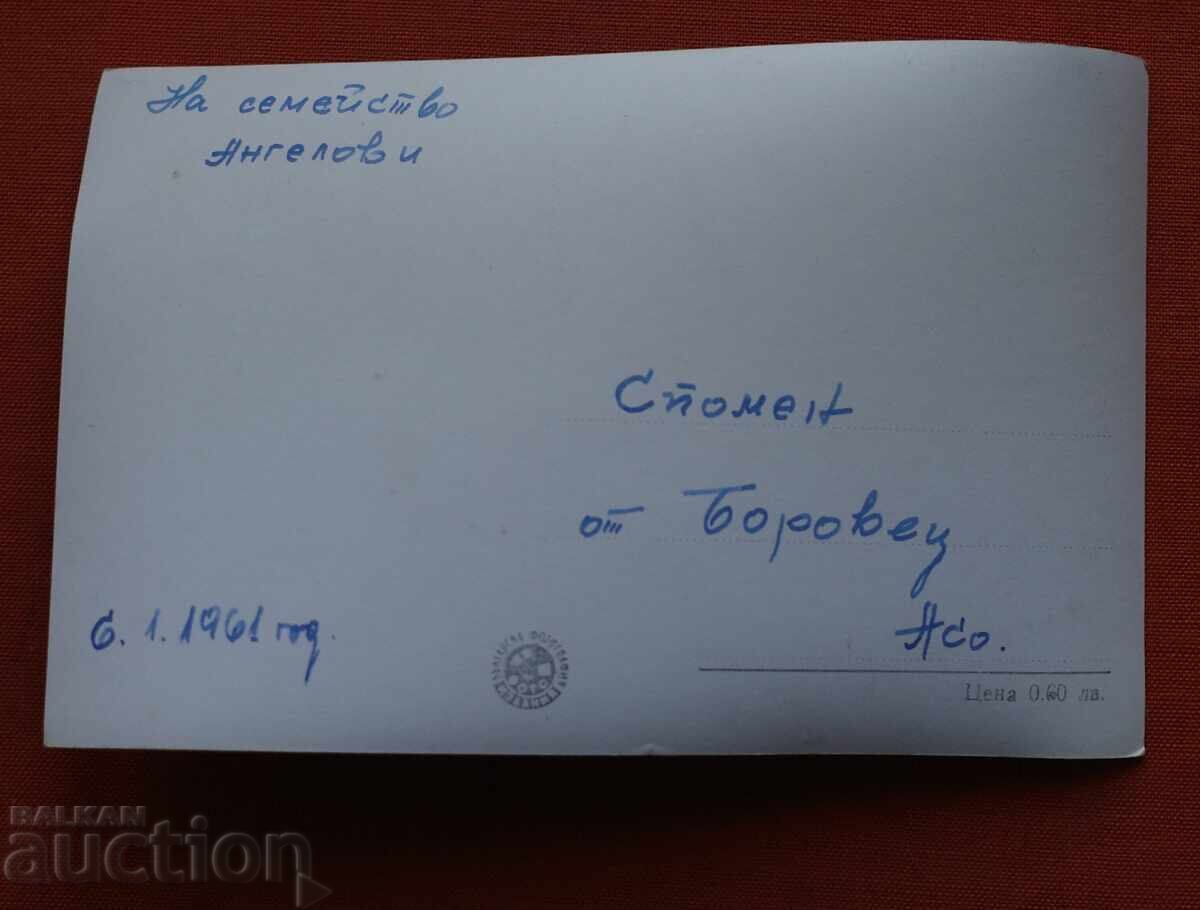 На семейство
Ангелови
Спомен
от Боровец
Асо.
6. 1. 1961 год.
ФОТО
Цена 0.60 лв.
BALKAN
auction